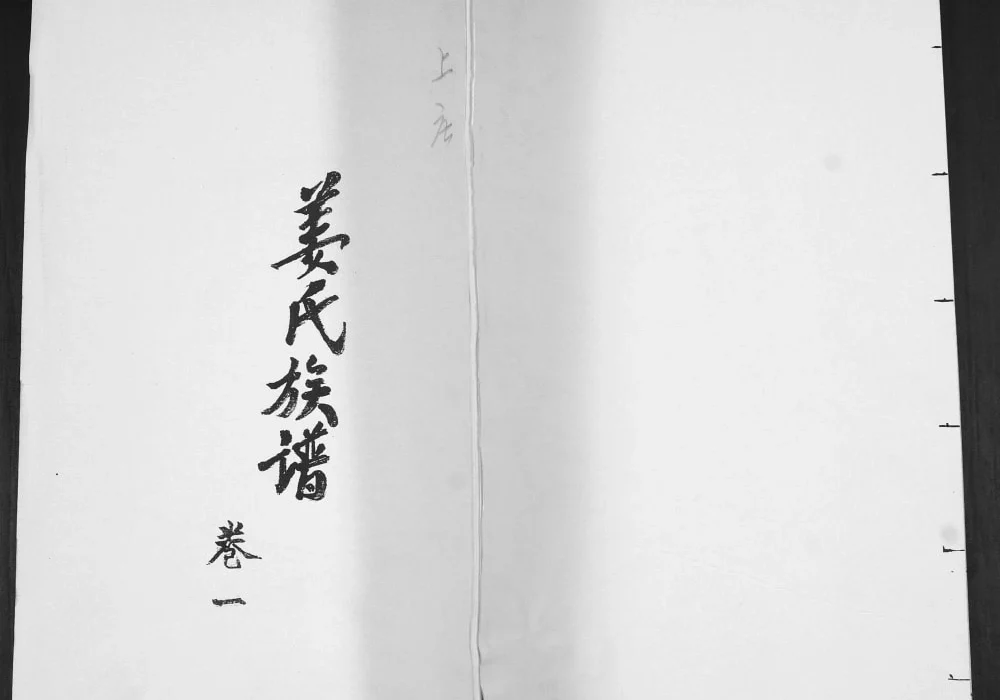 上店
姜氏族谱
卷一